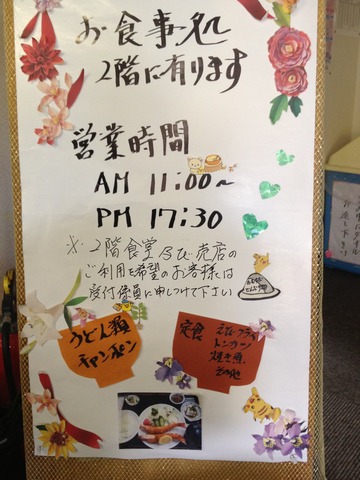 お食事処
2階に有ります
営業時間
AM 11:00~
PM 17:30
※2階食堂及び売店の
ご利用を希望のお客様は
受付係員に申しつけて下さい
うどん類
チャンポン
定食
エビフライ
トンカツ
焼き魚
その他